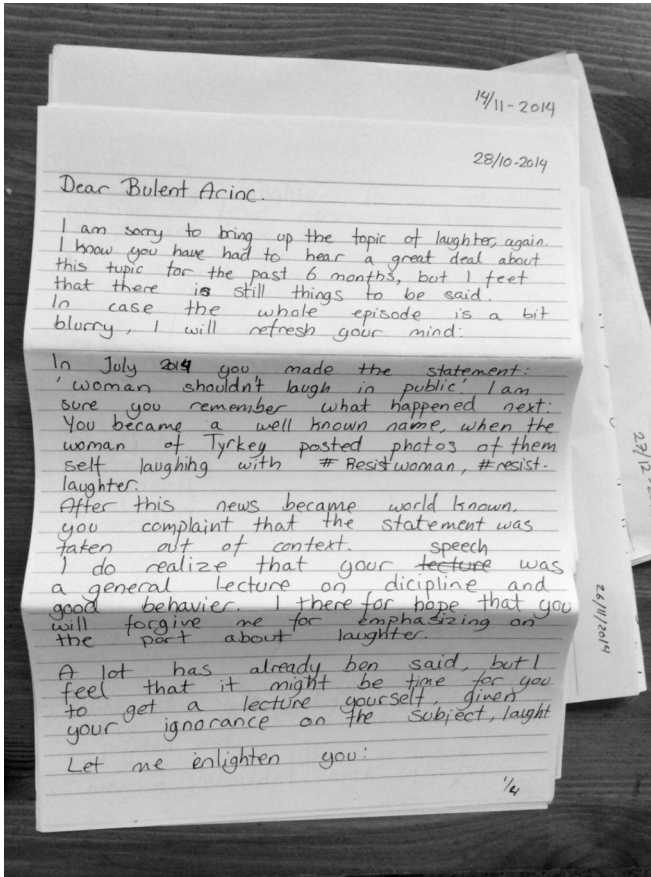 14/11-2014
28/10-2014
Dear Bulent Arinc.
I am sorry to bring up the topic of laughter, again.
I know you have had to hear a great deal about
this topic for the past 6 months, but I feel
that there is still things to be said.
In case the whole episode is a bit
blurry, I will refresh your mind:
In July 2014 you made the statement:
'woman shouldn't laugh in public'. I am
sure you remember what happened next:
You became a well known name, when the
woman of Tyrkey posted photos of them
self laughing with # Resistwoman, #resist-
laughter.
After this news became world known,
you complaint that the statement was
taken out of context.
I do realize that your lecture speech was
a general lecture on dicipline and
good behavier. I there for hope that you
will forgive me for emphasizing on
the part about laughter.
A lot has already ben said, but I
feel that it might be time for you
to get a lecture yourself, given
your ignorance on the subject, laught
Let me enlighten you:
1/4
27/12
26/11/2014